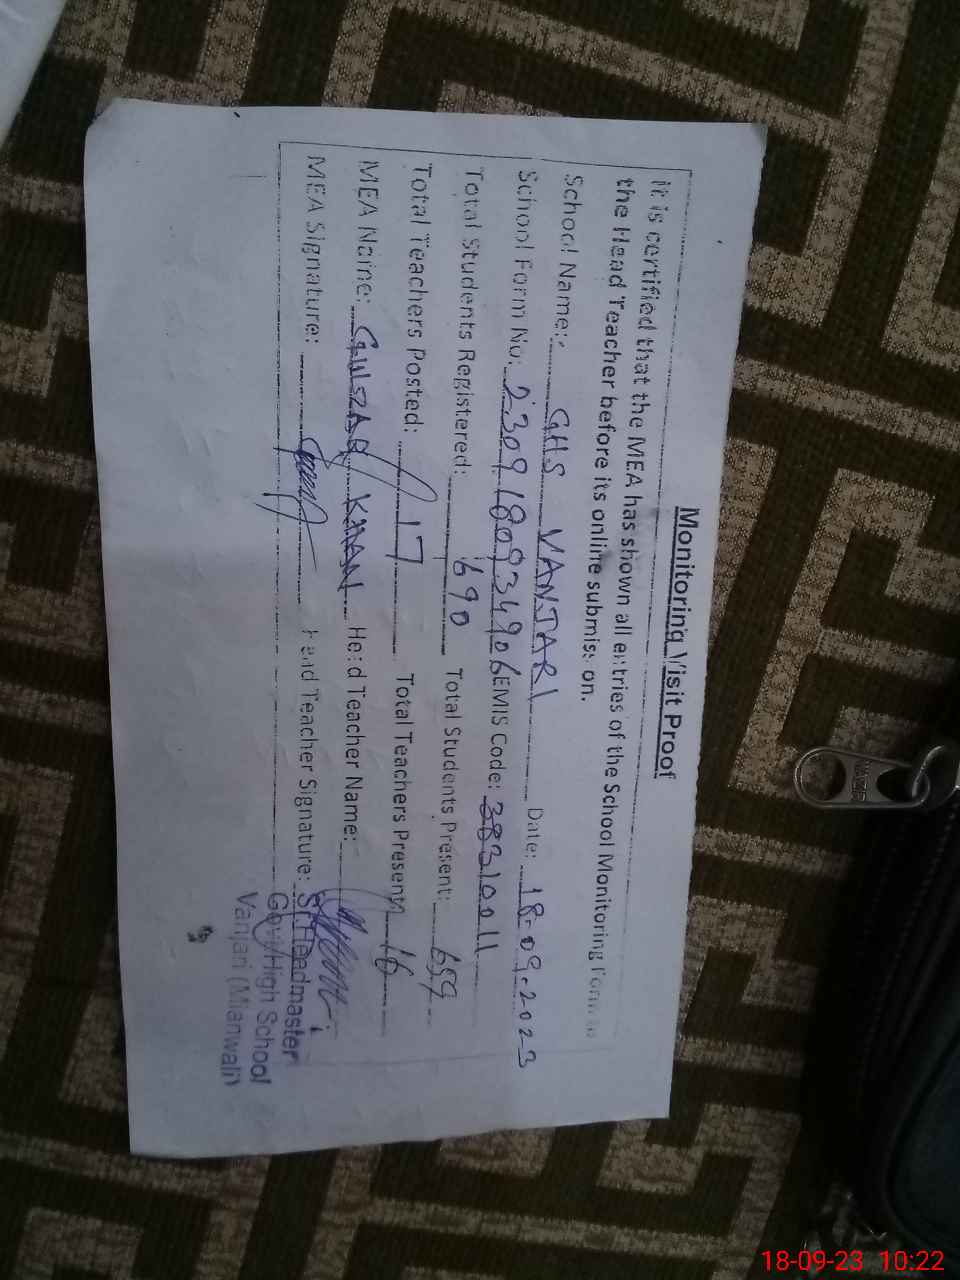 Monitoring Visit Proof
it is certified that the MEA has shown all entries of the School Monitoring Form to
the Head Teacher before its online submission.
School Name: GHS VANJARI Date: 18-09-2023
School Form No: 2309180934906 EMIS Code: 38310011
Total Students Registered: 690 Total Students Present: 659
Total Teachers Posted: 17 Total Teachers Present: 16
MEA Name: GULZAR KHAN Head Teacher Name:
MEA Signature: Head Teacher Signature:
Sr. Headmaster
Govt High School
Vanjari (Mianwali)
18-09-23 10:22